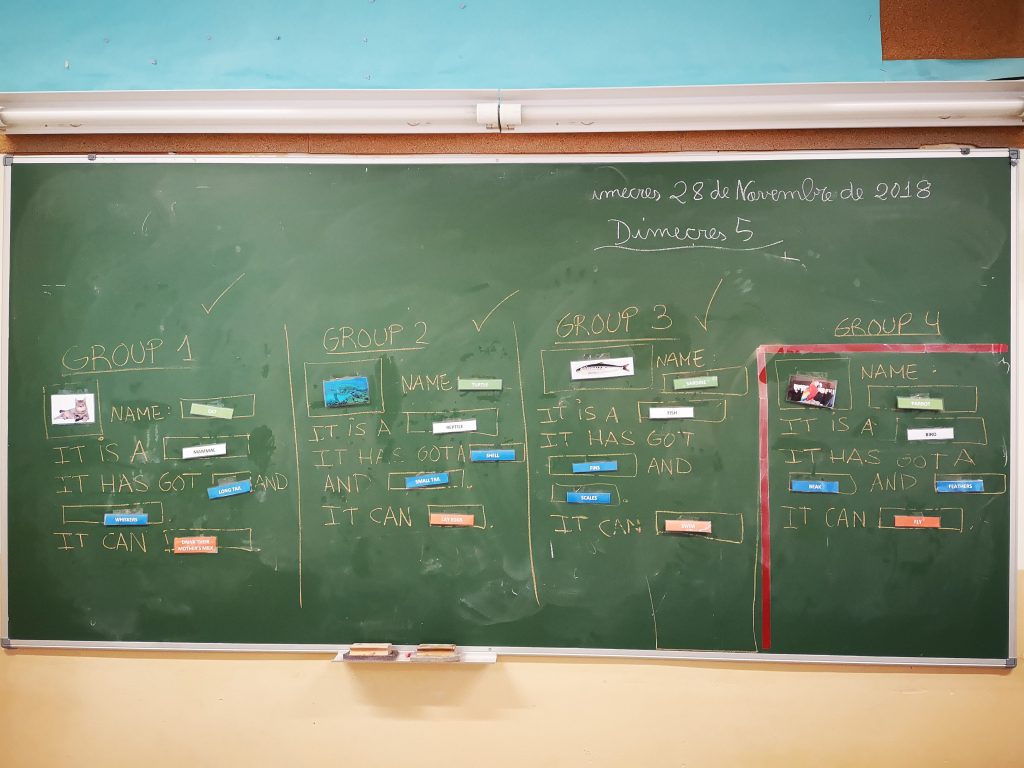 imecres 28 de Novembre de 2018
Dimecres 5
GROUP 1
NAME: CAT
IT IS A MAMMAL
IT HAS GOT LONG TAIL AND
WHISKERS
IT CAN DRINK THEIR MOTHER'S MILK
GROUP 2
NAME TURTLE
IT IS A REPTILE
IT HAS GOT A SHELL
AND SMALL TAIL.
IT CAN LAY EGGS.
GROUP 3
NAME:
SARDINE
IT IS A FISH
IT HAS GOT
FINS AND
SCALES.
IT CAN SWIM
GROUP 4
NAME :
PARROT
IT IS A BIRD
IT HAS GOT A
BEAK AND FEATHERS
IT CAN FLY.